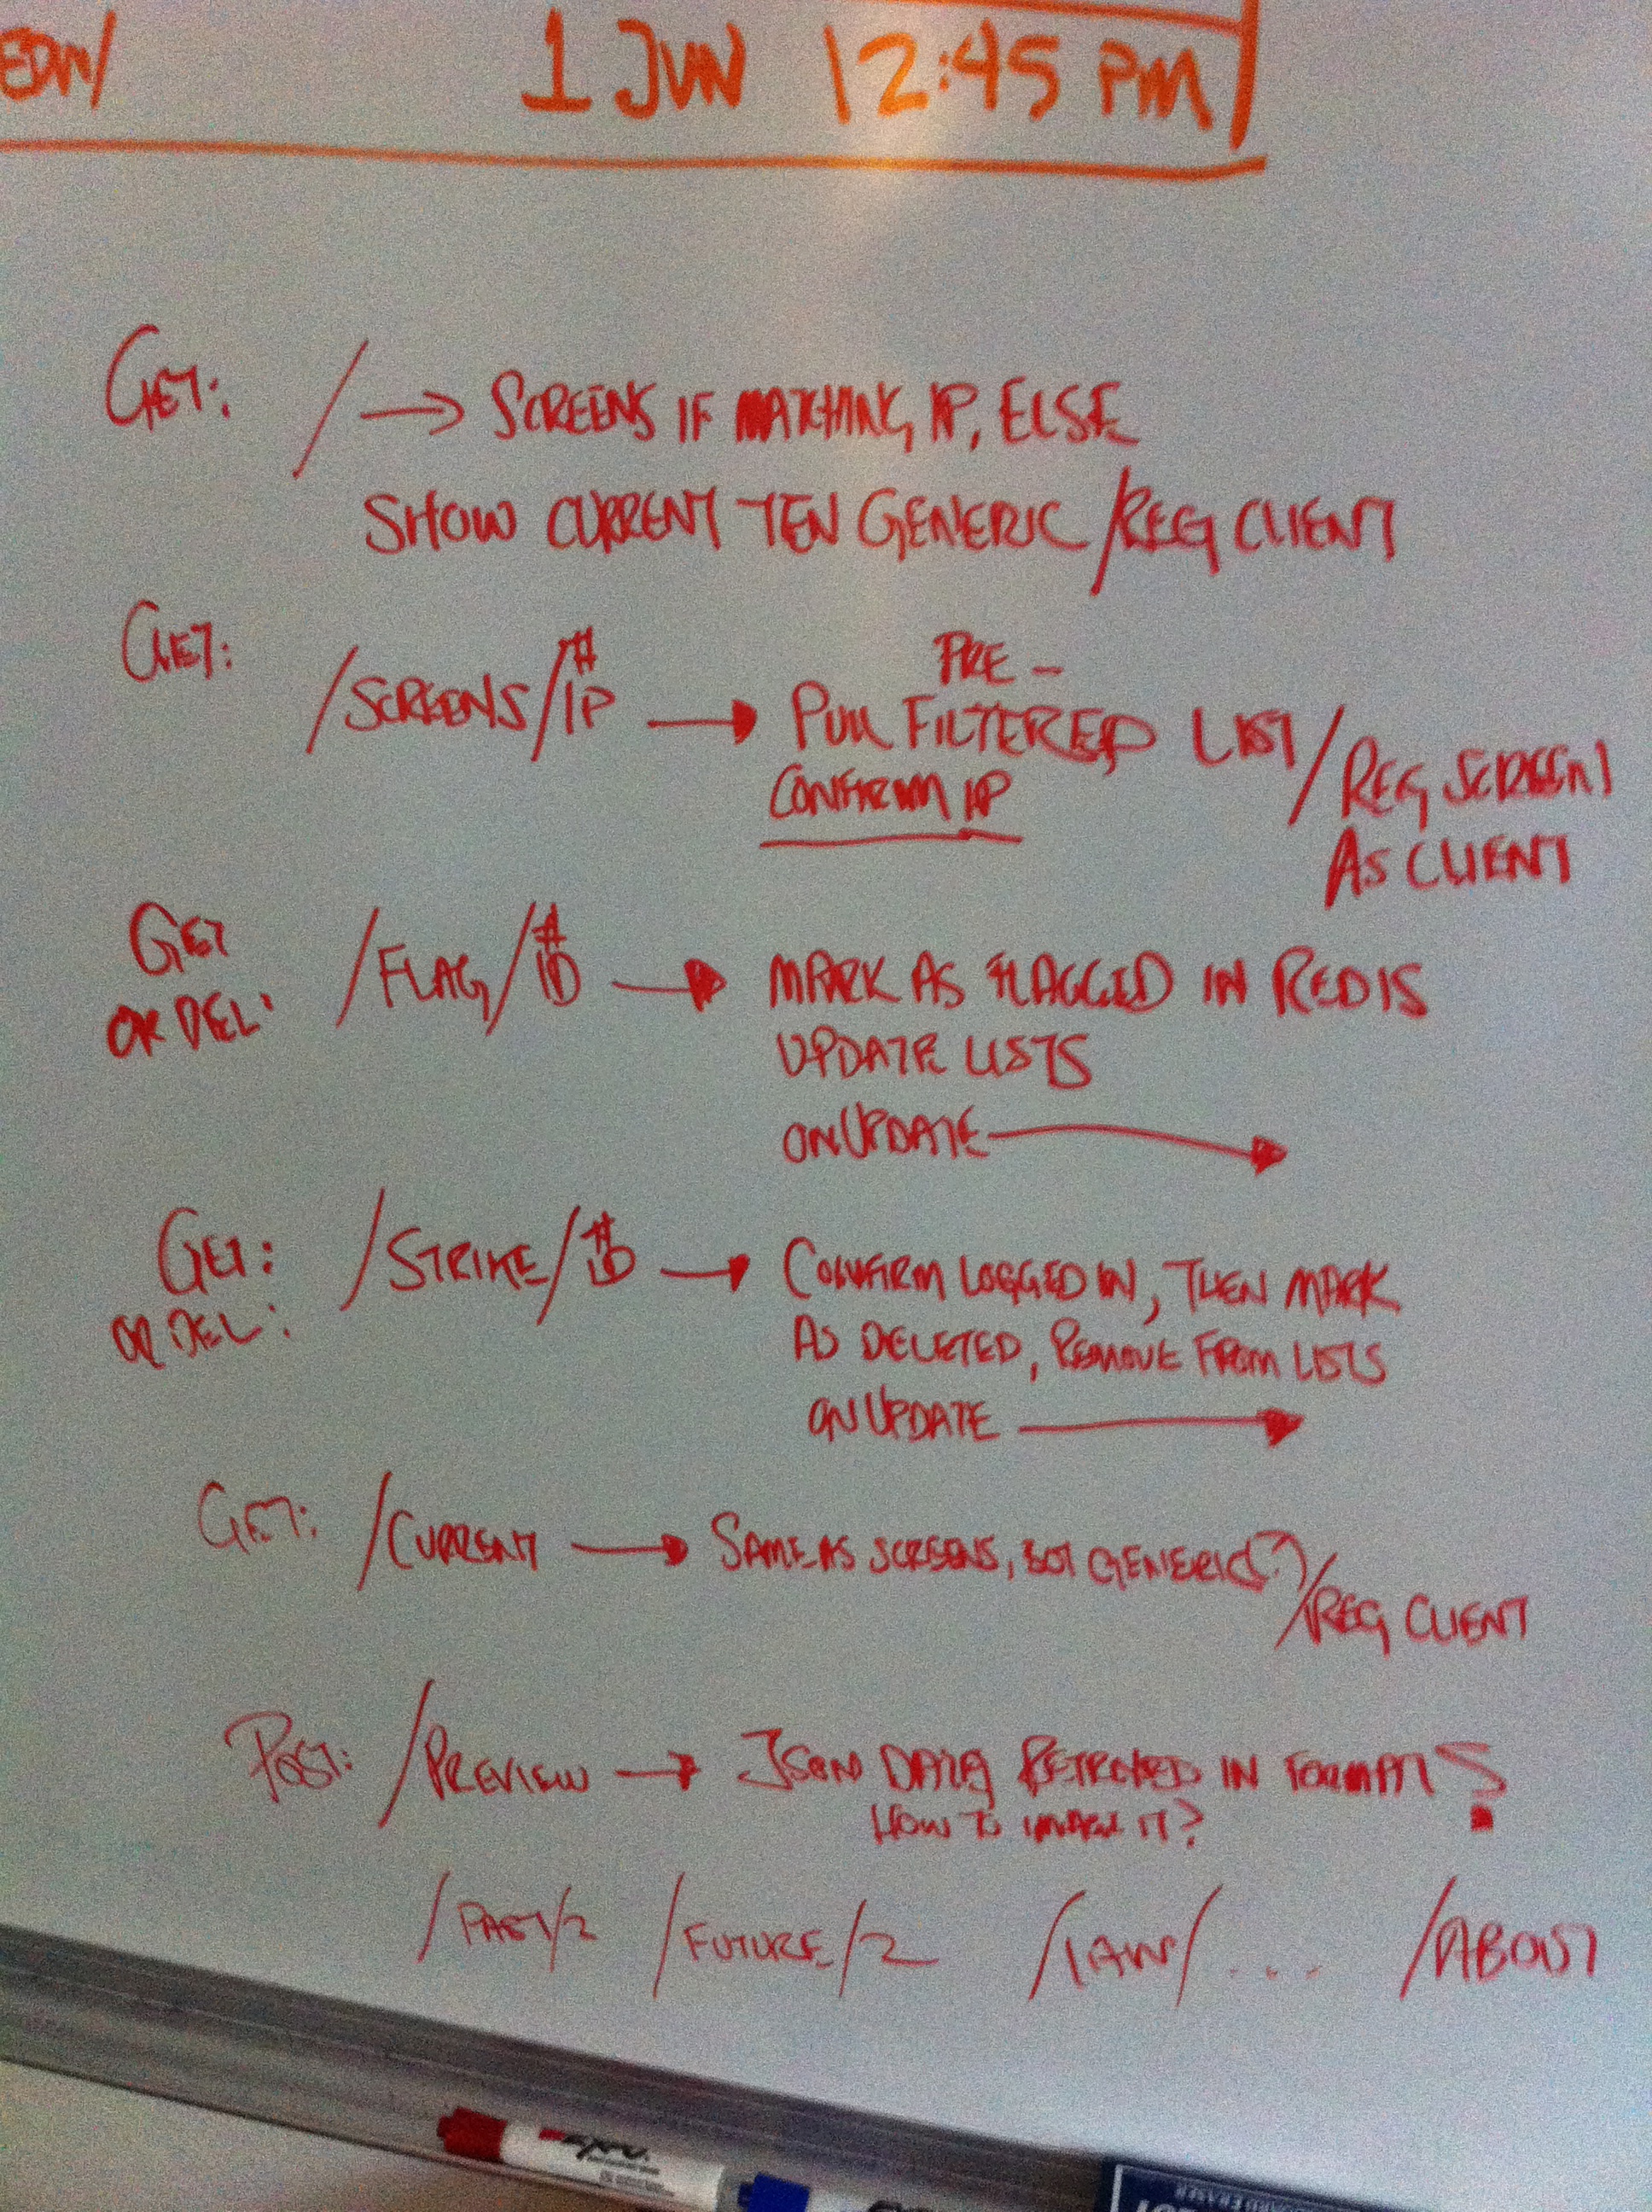 1 JUN 12:45 PM
GET: / → SCREENS IF MATCHING IP, ELSE
SHOW CURRENT TEN GENERIC /REG CLIENT
GET: /SCREENS/#IP → PULL PRE-FILTERED LIST/REG SCREEN
CONFIRM IP
AS CLIENT
GET OR DEL: /FLAG/#ID → MARK AS FLAGGED IN REDIS
UPDATE LISTS
ONUPDATE →
GET: OR DEL: /STRIKE/#ID → CONFIRM LOGGED IN, THEN MARK
AS DELETED, REMOVE FROM LISTS
ONUPDATE →
GET: /CURRENT → SAME AS SCREENS, BUT GENERIC(?)/REG CLIENT
POST: /PREVIEW → JSON DATA IN FORMAT?
HOW TO IT?
/PAST/2 /FUTURE/2 / / ... /ABOUT
EXPO
ERASER